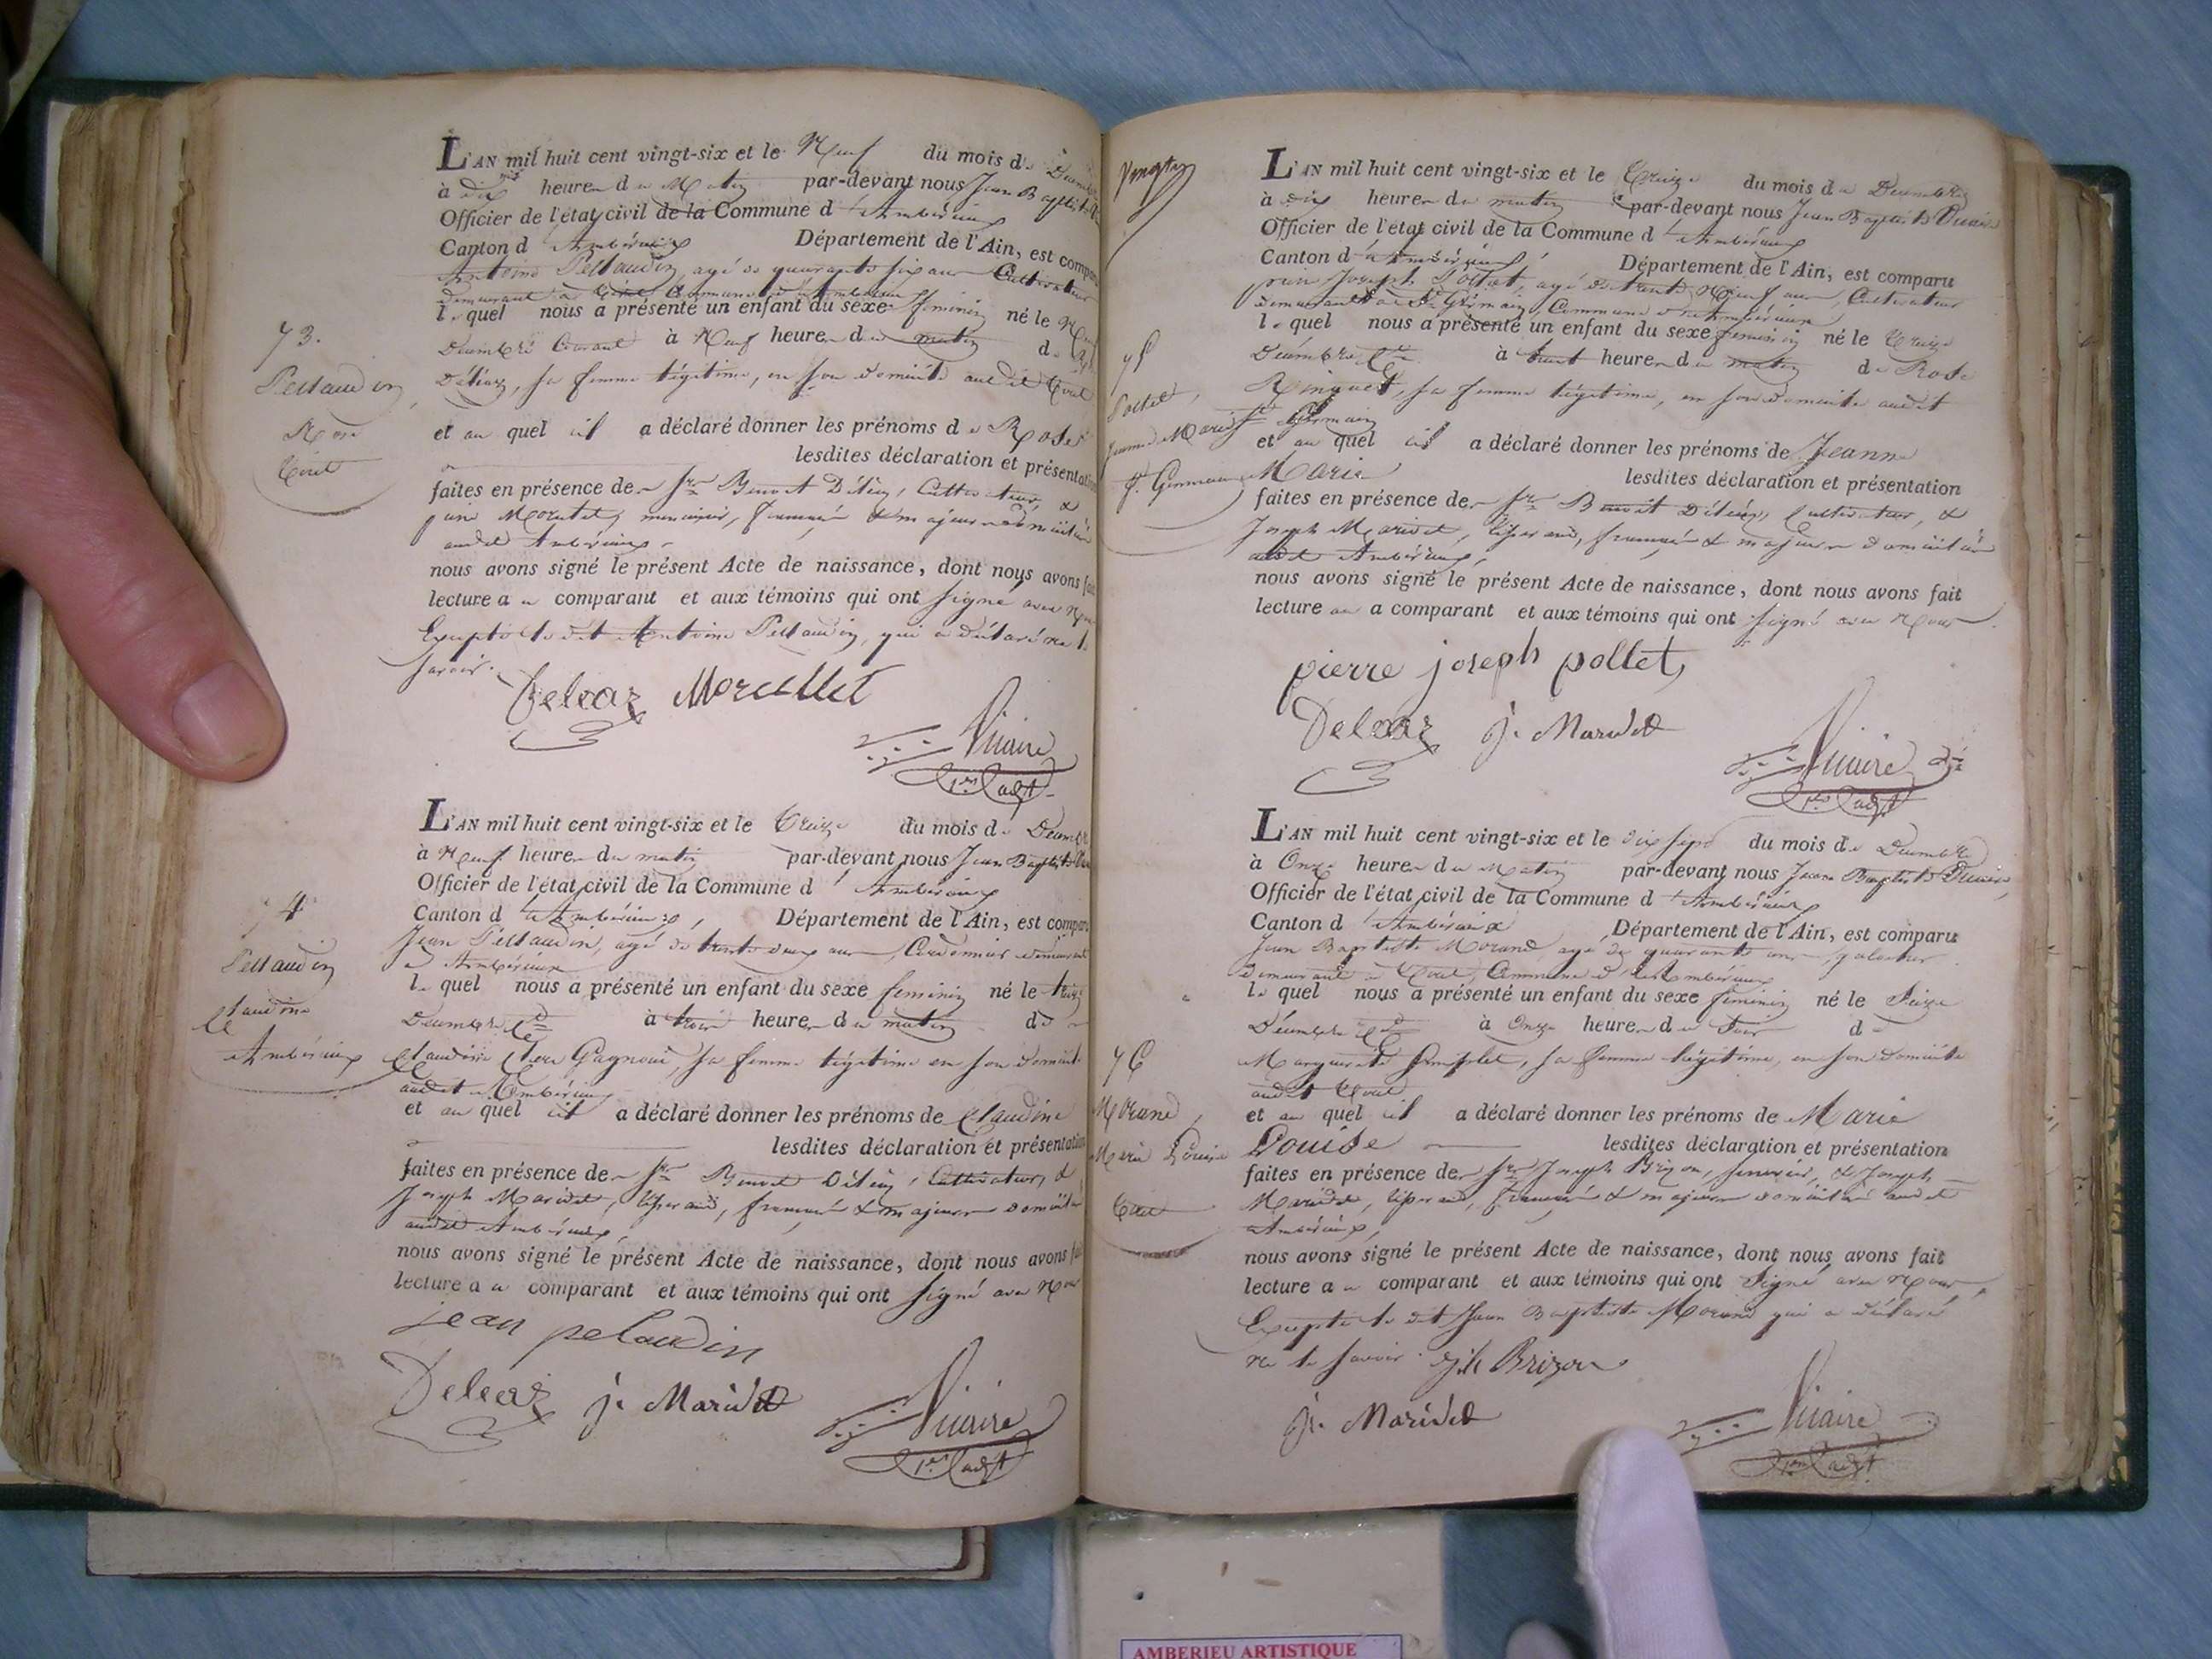 73.
Pellaudin
Rose
Tiret
L'AN mil huit cent vingt-six et le Neuf du mois de Décembre
à dix heures du Matin par-devant nous Jean Baptiste
Officier de l'état civil de la Commune d'Ambérieux
Canton d'Ambérieux Département de l'Ain, est comparu
Antoine Pellaudin, agé de quarante six ans Cultivateur
demeurant à Commune d'Ambérieux
lequel nous a présenté un enfant du sexe feminin né le Neuf
Décembre Courant à Neuf heures du matin de
sa femme légitime, en son domicile audit
et au quel il a déclaré donner les prénoms de Rose
lesdites déclaration et présentation
faites en présence de Srs Benoit Cultivateur, &
menuisier, français & majeurs domiciliés
audit Ambérieux
nous avons signé le présent Acte de naissance, dont nous avons fait
lecture au comparant et aux témoins qui ont signé avec Nous
Excepté le dit Antoine Pellaudin, qui a déclaré ne le
savoir.
Deleaz Morcellet
Vicaire
1er adjt
74
Pellaudin
Claudine
Ambérieux
L'AN mil huit cent vingt-six et le Treize du mois de Décembre
à Neuf heures du matin par-devant nous Jean Baptiste
Officier de l'état civil de la Commune d'Ambérieux
Canton d'Ambérieux, Département de l'Ain, est comparu
Jean Pellaudin, agé de trente deux ans, Cordonnier demeurant
à Ambérieux
lequel nous a présenté un enfant du sexe feminin né le treize
Décembre Ct à trois heures du matin de
Claudine sa femme légitime en son domicile
audit Ambérieux
et au quel il a déclaré donner les prénoms de Claudine
lesdites déclaration et présentation
faites en présence de Srs Benoit Cultivateur, &
Joseph Maridet, français & majeurs domiciliés
audit Ambérieux,
nous avons signé le présent Acte de naissance, dont nous avons fait
lecture au comparant et aux témoins qui ont signé avec Nous
jean pelaudin
Deleaz j. Maridet
Vicaire
1er adjt
75
Pollet,
Jeanne Marie
St. Germain
L'AN mil huit cent vingt-six et le Treize du mois de Décembre
à dix heures du matin par-devant nous Jean Baptiste Vicaire
Officier de l'état civil de la Commune d'Ambérieux
Canton d'Ambérieux, Département de l'Ain, est comparu
Joseph Pollet, agé de trente Neuf ans, Cultivateur
demeurant à St Germain, Commune d'Ambérieux
lequel nous a présenté un enfant du sexe feminin né le Treize
Décembre Ct à huit heures du matin de Rose
Ringuet, sa femme légitime, en son domicile audit
St Germain
et au quel il a déclaré donner les prénoms de Jeanne
Marie lesdites déclaration et présentation
faites en présence de Srs Benoit Cultivateur, &
Joseph Maridet, français & majeurs domiciliés
audit Ambérieux,
nous avons signé le présent Acte de naissance, dont nous avons fait
lecture au comparant et aux témoins qui ont signé avec Nous
pierre joseph pollet
Deleaz j. Maridet
Vicaire
1er adjt
76
Morand,
Marie Louise
L'AN mil huit cent vingt-six et le dix sept du mois de Décembre
à Onze heures du Matin par-devant nous Jean Baptiste Vicaire
Officier de l'état civil de la Commune d'Ambérieux
Canton d'Ambérieux Département de l'Ain, est comparu
Jean Baptiste Morand agé de quarante ans,
demeurant à Commune d'Ambérieux
lequel nous a présenté un enfant du sexe feminin né le Seize
Décembre Ct à Onze heures du Soir de
Marguerite sa femme légitime, en son domicile
audit
et au quel il a déclaré donner les prénoms de Marie
Louise lesdites déclaration et présentation
faites en présence de Srs Joseph Brizon, & Joseph
Maridet, français & majeurs domiciliés audit
Ambérieux,
nous avons signé le présent Acte de naissance, dont nous avons fait
lecture au comparant et aux témoins qui ont Signé avec Nous,
Excepté le dit Jean Baptiste Morand qui a déclaré
ne le savoir. Brizon
j. Maridet
Vicaire
1er adjt
AMBERIEU ARTISTIQUE